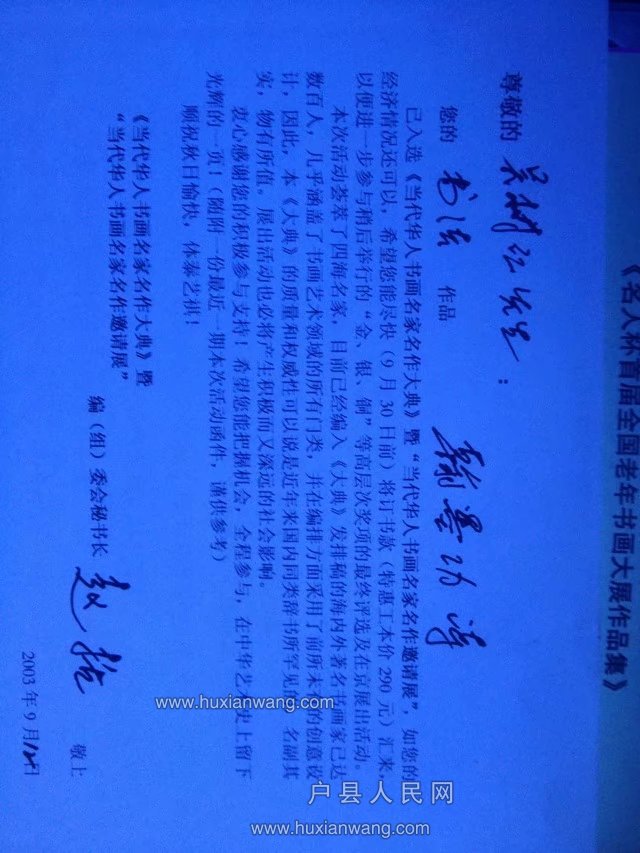 尊敬的 吴树仁先生：
您的 书法 作品
已入选《当代华人书画名家名作大典》暨“当代华人书画名家名作邀请展”，如您的
经济情况还可以，希望您能尽快（9月30日前）将订书款（特惠工本价290元）汇来，
以便进一步参与稍后举行的“金、银、铜”等高层次奖项的最终评选及在京展出活动。
本次活动荟萃了四海名家，目前已经编入《大典》发排稿的海内外著名书画家已达
数百人，几乎涵盖了书画艺术领域的所有门类，并在编排方面采用了前所未有的创意设
计，因此，本《大典》的质量和权威性可以说是近年来国内同类辞书所罕见的，名副其
实，物有所值。展出活动也必将产生积极而又深远的社会影响。
衷心感谢您的积极参与支持！希望您能把握机会，全程参与，在中华艺术史上留下
光辉的一页！（随附一份最近一期本次活动函件，谨供参考）
顺祝秋日愉快，体泰艺祺！
《当代华人书画名家名作大典》暨
“当代华人书画名家名作邀请展”
编（组）委会秘书长
敬上
2003年9月12日
《名人杯首届全国老年书画大展作品集》
www.huxianwang.com
户县人民网
www.huxianwang.com